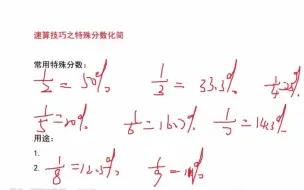 速算技巧之特殊分数化简
常用特殊分数：
1/2 = 50% 1/3 = 33.3% 1/4 = 25%
1/5 = 20% 1/6 = 16.7% 1/7 = 14.3%
用途：
1.
2. 1/8 = 12.5% 1/9 =